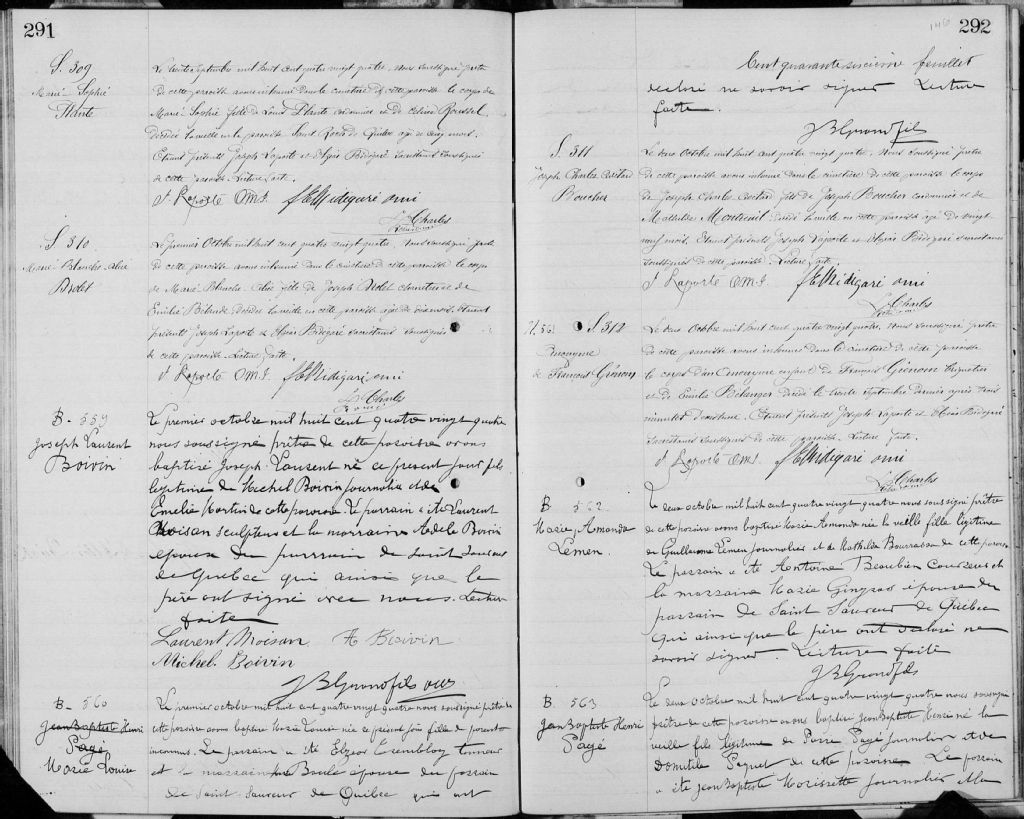 291
S. 309
Marie Sophie
Plante
Le trente septembre mil huit cent quatre vingt quatre, Nous soussigné prêtre
de cette paroisse avons inhumé dans le cimetière de cette paroisse le corps de
Marie Sophie fille de Louis Plante cordonnier et de Celina Roussel,
décédée la veille en la paroisse Saint Roch de Québec agée de cinq mois.
Etaient présents Joseph Laporte et Elzéar Bédégaré sacristains soussignés
de cette paroisse. Lecture faite.
J. Laporte O.M.I.
L. Charles
S. 310
Marie Blanche Alice
Drolet
Le premier Octobre mil huit cent quatre vingt quatre, Nous soussigné prêtre
de cette paroisse avons inhumé dans le cimetière de cette paroisse le corps
de Marie Blanche Alice fille de Joseph Drolet charretier et de
Emilie Bélanger décédée la veille en cette paroisse agée de dix mois. Etaient
présents Joseph Laporte et Elzéar Bédégaré sacristains soussignés
de cette paroisse. Lecture faite.
J. Laporte O.M.I.
L. Charles
B - 559
Joseph Laurent
Boivin
Le premier octobre mil huit cent quatre vingt quatre
nous soussigné prêtre de cette paroisse avons
baptisé Joseph Laurent né ce present jour fils
legitime de Michel Boivin journalier et de
Emelie Martin de cette paroisse. Le parrain a été Laurent
Moisan sculpteur et la marraine Adele Boivin
epouse du parrain de Saint Sauveur
de Quebec qui ainsi que le
père ont signé avec nous. Lecture
faite
Laurent Moisan A Boivin
Michel Boivin
JB Grandfils
B - 560
Jean Baptiste Henri
Pagé
Marie Louise
Le premier octobre mil huit cent quatre vingt quatre nous soussigné prêtre de
cette paroisse avons baptisé Marie Louise née ce présent jour fille de parents
inconnus. Le parrain a été Elzear Tremblay
et la marraine Boulé épouse du parrain
de Saint Sauveur de Québec qui ont
292
146
Cent quarante sixième feuillet
declaré ne savoir signer Lecture
faite.
JB Grandfils
S. 311
Joseph Charles
Boucher
Le deux Octobre mil huit cent quatre vingt quatre, Nous soussigné prêtre
de cette paroisse avons inhumé dans le cimetière de cette paroisse le corps
de Joseph Charles fils de Joseph Boucher cordonnier et de
Mathilde Montreuil décédé la veille en cette paroisse agé de vingt
neuf mois. Etaient présents Joseph Laporte et Elzéar Bédégaré sacristains
soussignés de cette paroisse. Lecture faite.
J. Laporte O.M.I.
L. Charles
N. 561 S. 312
Anonyme
de François Grénom
Le deux Octobre mil huit cent quatre vingt quatre, Nous soussigné prêtre
de cette paroisse avons inhumé dans le cimetière de cette paroisse
le corps d'un Anonyme enfant de François Grénom briquetier
et de Emilie Bélanger décédé le trente septembre dernier après trois
minutes d'existence. Etaient présents Joseph Laporte et Elzéar Bédégaré
sacristains soussignés de cette paroisse. Lecture faite.
J. Laporte O.M.I.
L. Charles
B 562
Marie Amanda
Lemen.
Le deux octobre mil huit cent quatre vingt quatre nous soussigné prêtre
de cette paroisse avons baptisé Marie Amanda née la veille fille légitime
de Guillaume Lemen journalier et de Mathilda Bourrassa de cette paroisse
Le parrain a été Antoine Beaubien Couvreur et
la marraine Marie Gingras épouse du
parrain de Saint Sauveur de Québec
qui ainsi que le père ont declaré ne
savoir signer. Lecture faite
JB Grandfils
B. 563
Jean Baptiste Henri
Pagé
Le deux Octobre mil huit cent quatre vingt quatre nous soussigné
prêtre de cette paroisse avons baptisé Jean Baptiste Henri né la
veille fils légitime de Pierre Pagé journalier et de
Domitile Paquet de cette paroisse Le parrain
a été Jean Baptiste Morissette journalier et la